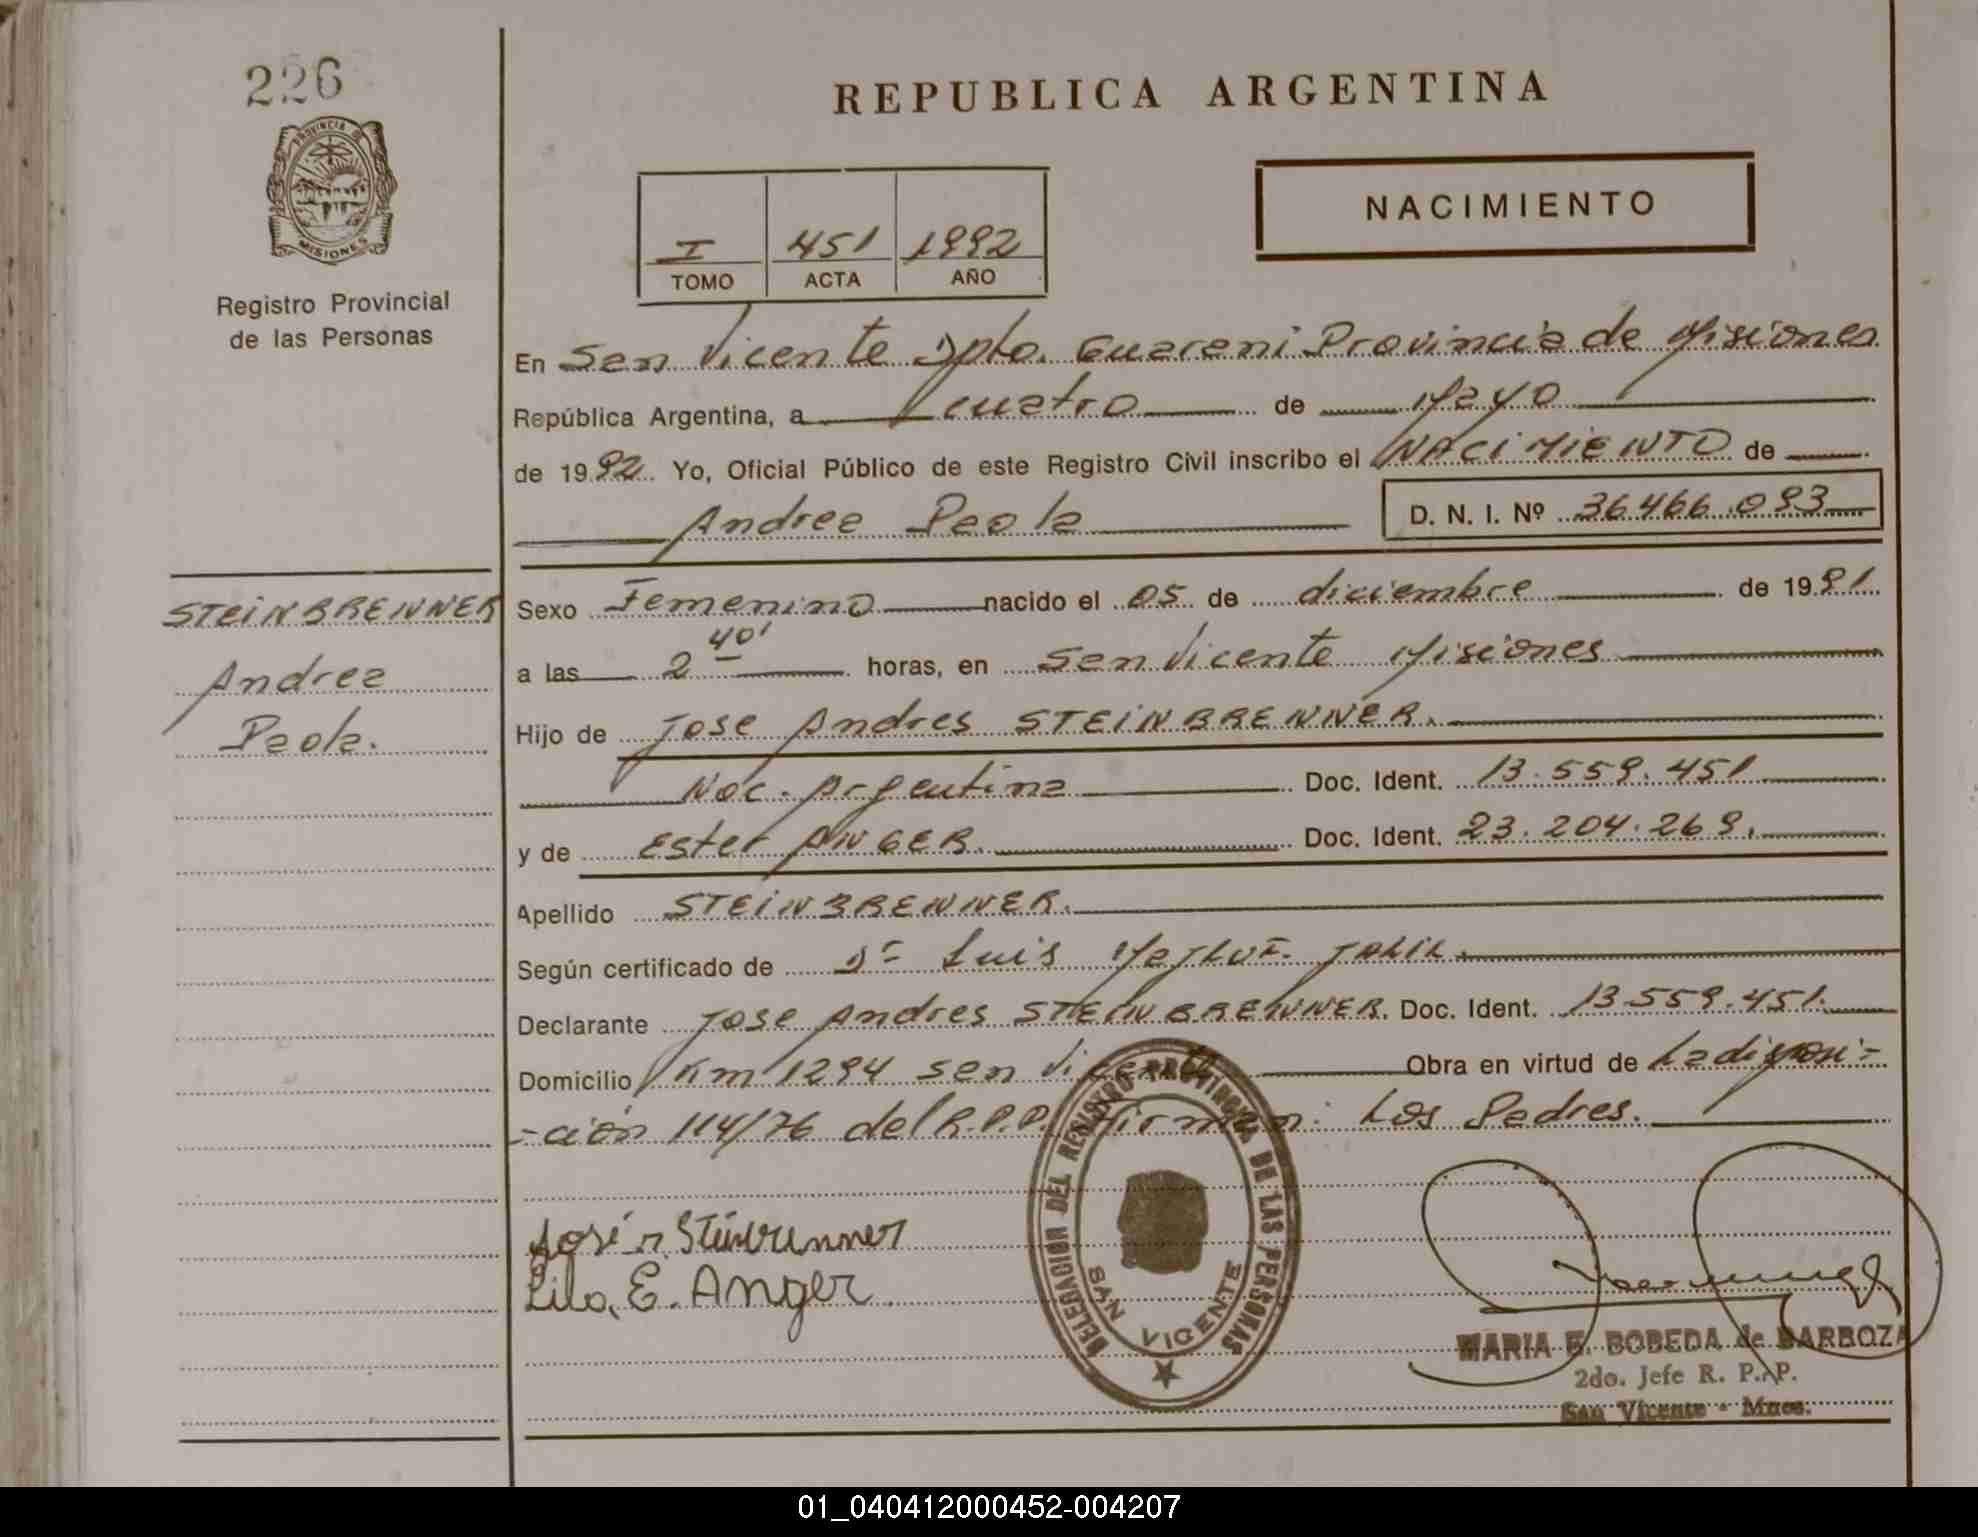 226
PROVINCIA DE
MISIONES
Registro Provincial
de las Personas
REPUBLICA ARGENTINA
NACIMIENTO
I 451 1992
TOMO ACTA AÑO
En San Vicente Dpto. Guarani Provincia de Misiones
República Argentina, a cuatro de Mayo
de 1992. Yo, Oficial Público de este Registro Civil inscribo el NACIMIENTO de
Andrea Paola D. N. I. Nº 36466.093
STEINBRENNER
Andrea
Paola.
Sexo Femenino nacido el 05 de diciembre de 1991
a las 2 40' horas, en San Vicente Misiones
Hijo de Jose Andres STEINBRENNER.
Nac. Argentina Doc. Ident. 13.559.451
y de Ester ANGER. Doc. Ident. 23.204.269.
Apellido STEINBRENNER.
Según certificado de Dr Luis JALIL.
Declarante Jose Andres STEINBRENNER. Doc. Ident. 13.559.451.
Domicilio Km 1294 San Vicente Obra en virtud de La disposi-
-ción 114/76 del R.P.P. Firman: Los Padres.
José A. Steinbrenner
E. Anger
DELEGACION DEL REGISTRO PROVINCIAL DE LAS PERSONAS
SAN VICENTE
MARIA E. BOBEDA de BARBOZA
2do. Jefe R. P. P.
San Vicente - Mnes.
01_040412000452-004207